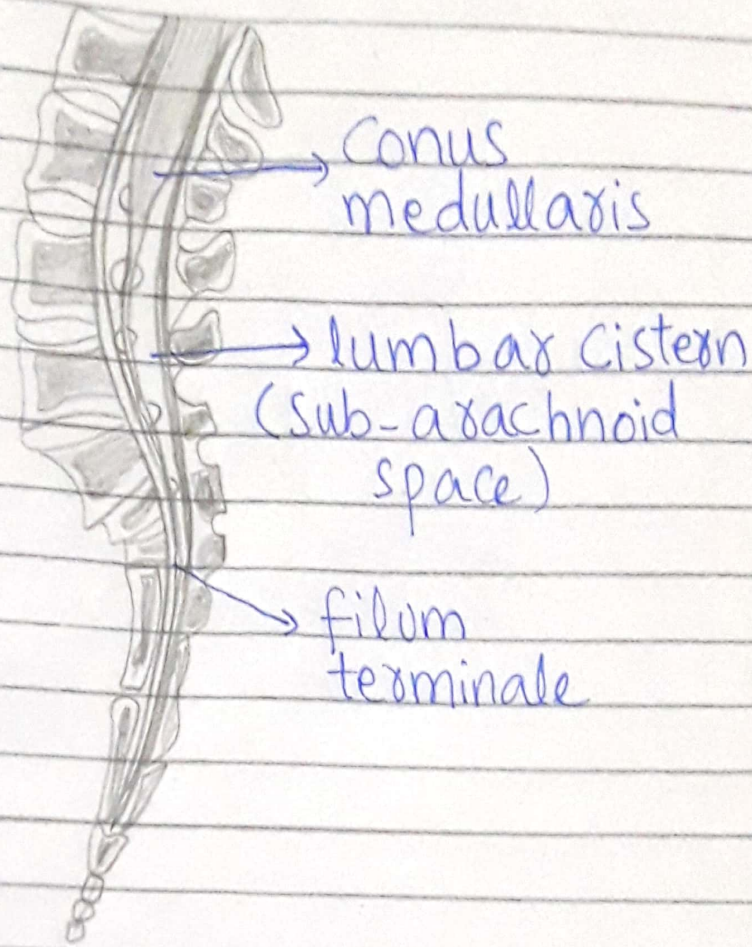 Conus
medullaris
lumbar cistern
(sub-arachnoid
space)
filum
terminale